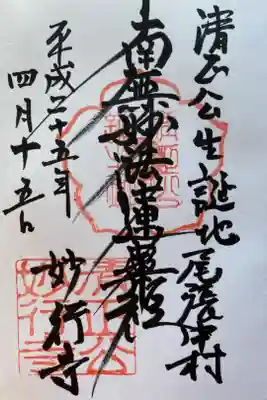 清正公生誕地尾張中村
南無妙法蓮華経
平成二十五年
四月十五日
妙行寺